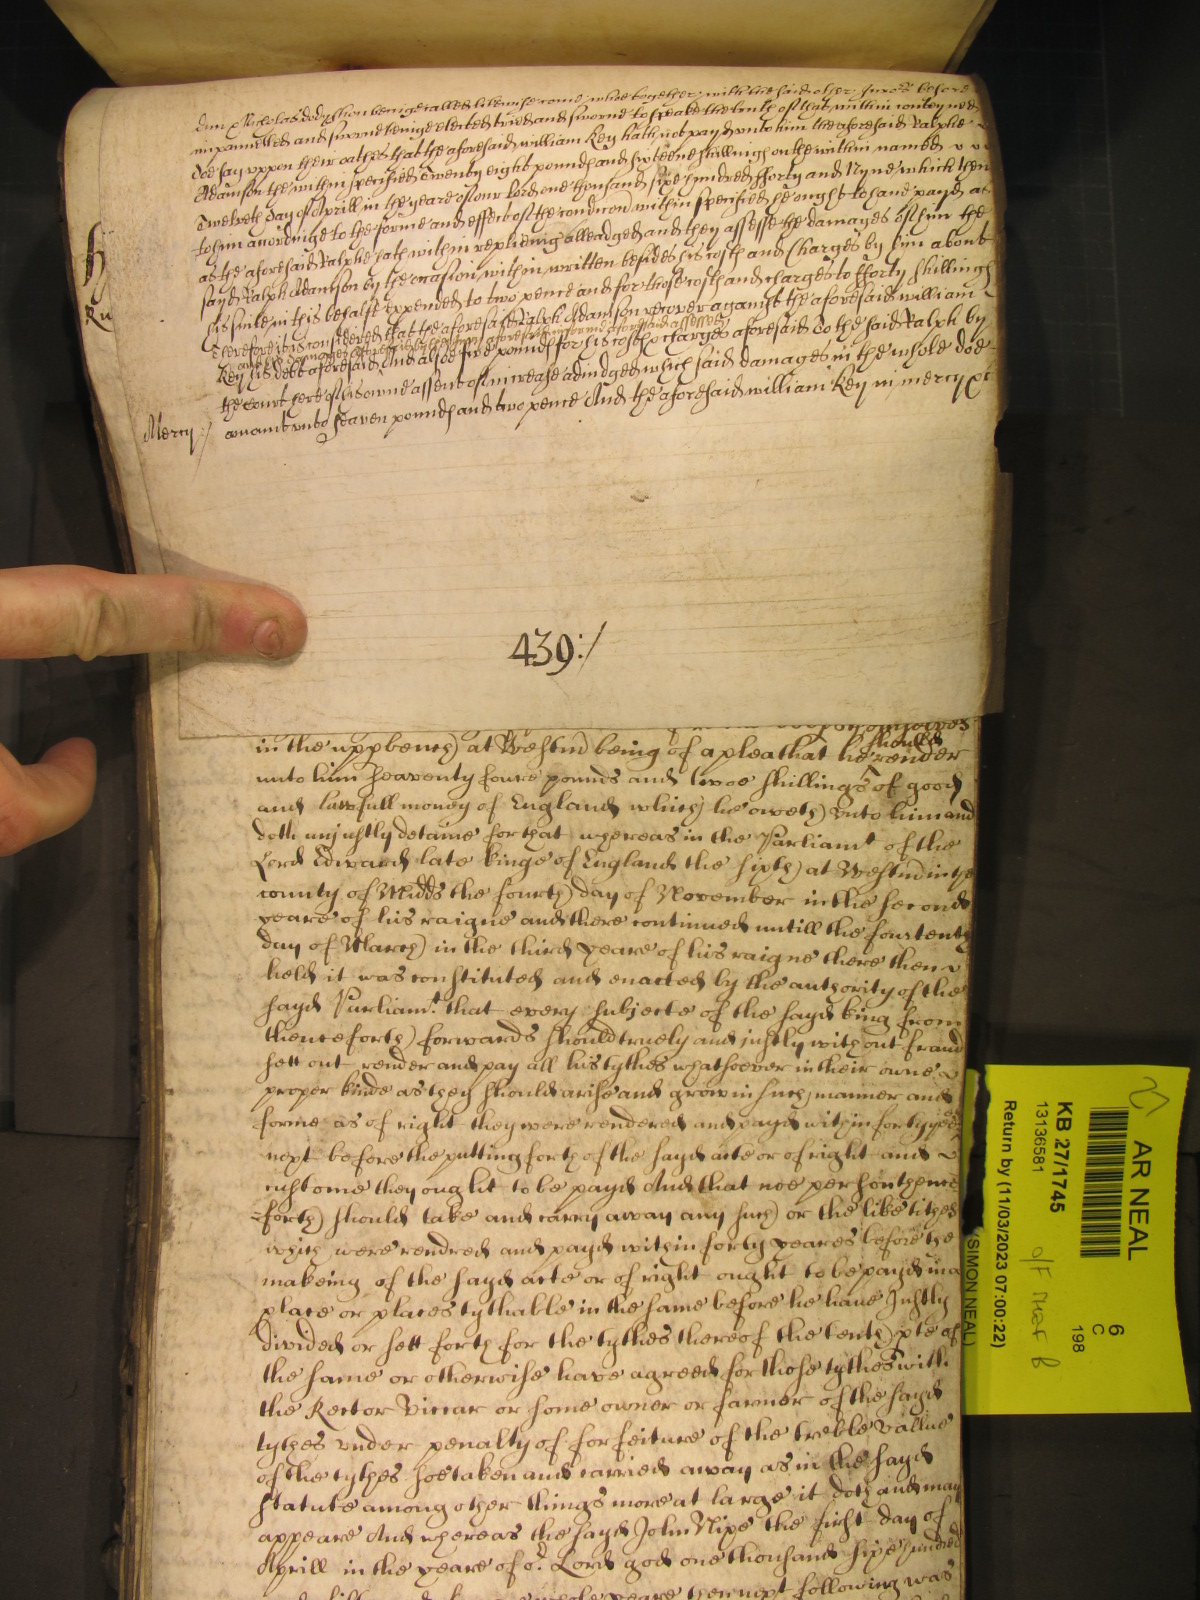 Nicholas Dodgshon being called likewise come whoe together with the said other Juro:rs before
impannelled and sworne being elected tried and sworne to speake the truth of that within conteyned
doe say uppon their oathes that the aforesaid William Key hath not payd unto him the aforesaid Ralphe
Adamson the within specified Twenty eight pounds and sixteene shillings on the within named
Twelveth day of Aprill in the yeare of our Lord one thousand sixe hundred fforty and Nyne which then
to him accordinge to the forme and effect of the condicon within specified he ought to have payd as
as the aforesaid Ralphe hath within replieing alleadged and they assesse the damages of him the
sayd Ralph Adamson by the occasion within written besides his costs and Charges by him about
his suite in this behalfe expended to two pence and for those costs and charges to fforty shillings
Therefore it is considered that the aforesaid Ralph Adamson recover against the aforesaid William
Key his debt aforesaid And alsoe five pounds for his costs & charges aforesaid To the said Ralph by
the court here of his owne assent of increase adiudged which said damages in the whole doe
Mercy:/ amount unto seaven pounds and two pence And the aforesaid William Key in mercy &c
439:/
in the uppbench) at Westm:d being of a plea that he should render
unto him seaventy foure pounds and twoe shillings of good
and lawfull money of England which) he oweth) vnto him and
doth uniustly detaine for that whereas in the Parliam:t of the
Lord Edward late kinge of England the sixth) at Westmd in ye
county of Midds the fourth) day of November in the second
yeare of his raigne and there continued untill the fourtenth
day of March) in the third yeare of his raigne there then
held it was constituted and enacted by the authority of the
sayd Parliam:t that every subjecte of the sayd king from
thenceforth) forwards should truely and justly without fraud
sett out render and pay all his tythes whatsoever in their owne
proper kinde as they should arise and grow in such) manner and
forme as of right they were rendered and payd within forty yeres
next before the putting forth of the sayd acte or of right and
custome they ought to be payd And that noe person thence
forth) should take and carry away any such) or the like tithes
which were rendred and payd within forty yeares before the
makeing of the sayd acte or of right ought to be payd in a
place or places tythable in the same before he have Justly
divided or sett forth for the tythes thereof the tenth) pte of
the same or otherwise have agreed for those tythes with
the Rector Viccar or some owner or farmer of the sayd
tythes vnder penalty of forfeiture of the treble vallue
of the tythes soe taken and carried away as in the sayd
statute among other things more at large it doth and may
appeare And whereas the sayd John Nixe the first day of
Aprill in the yeare of o:r Lord god one thousand sixe hundred
whole yeare then next following was
AR NEAL
KB 27/1745
13136581
Return by (11/03/2023 07:00:22)
(SIMON NEAL)
6
C
198